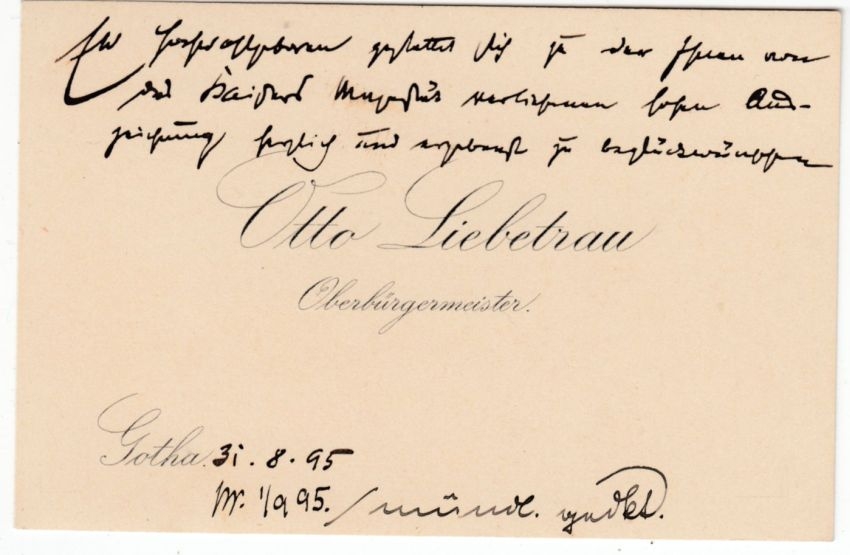 Ew Hochwohlgeboren gestattet sich zu der Ihnen von
des Kaisers Majestät verliehenen hohen Aus-
zeichnung herzlich und ergebenst zu beglückwünschen
Otto Liebetrau
Oberbürgermeister.
Gotha. 31. 8. 95
pr. 1/9 95. / mündl. gedkt.